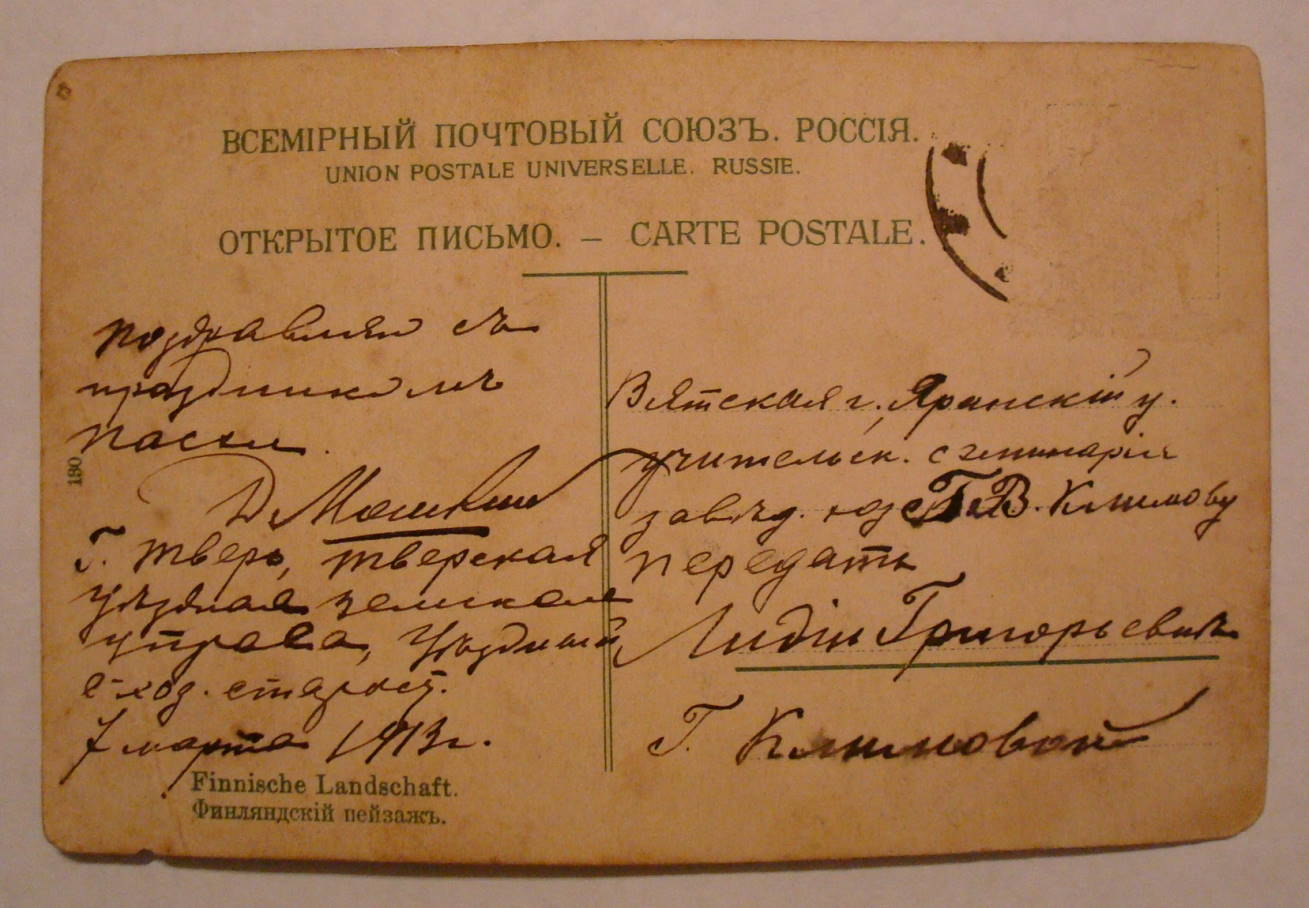 ВСЕМІРНЫЙ ПОЧТОВЫЙ СОЮЗЪ. РОССІЯ.
UNION POSTALE UNIVERSELLE. RUSSIE.
ОТКРЫТОЕ ПИСЬМО. — CARTE POSTALE.
Поздравляю съ
праздникомъ
Пасхи.
Г. Тверь, Тверская
уѣздная земская
управа, Уѣздный
7 марта 1913 г.
180
Finnische Landschaft.
Финляндскій пейзажъ.
Вятская г., Яранскій у.
учительск. семинарія
завѣд. Г. В. Климову
передать
Лидіи Григорьевнѣ
Г. Климовой